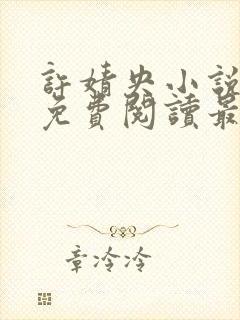 許婧央小說
免費閱讀最
章冷冷